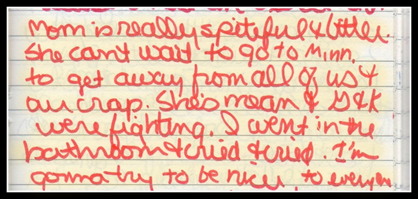 Mom is really spiteful & bitter.
She can't wait to go to Minn.
to get away from all of us &
our crap. She's mean & D&K
were fighting. I went in the
bathroom & cried & cried. I'm
gonna try to be nicer to everyone